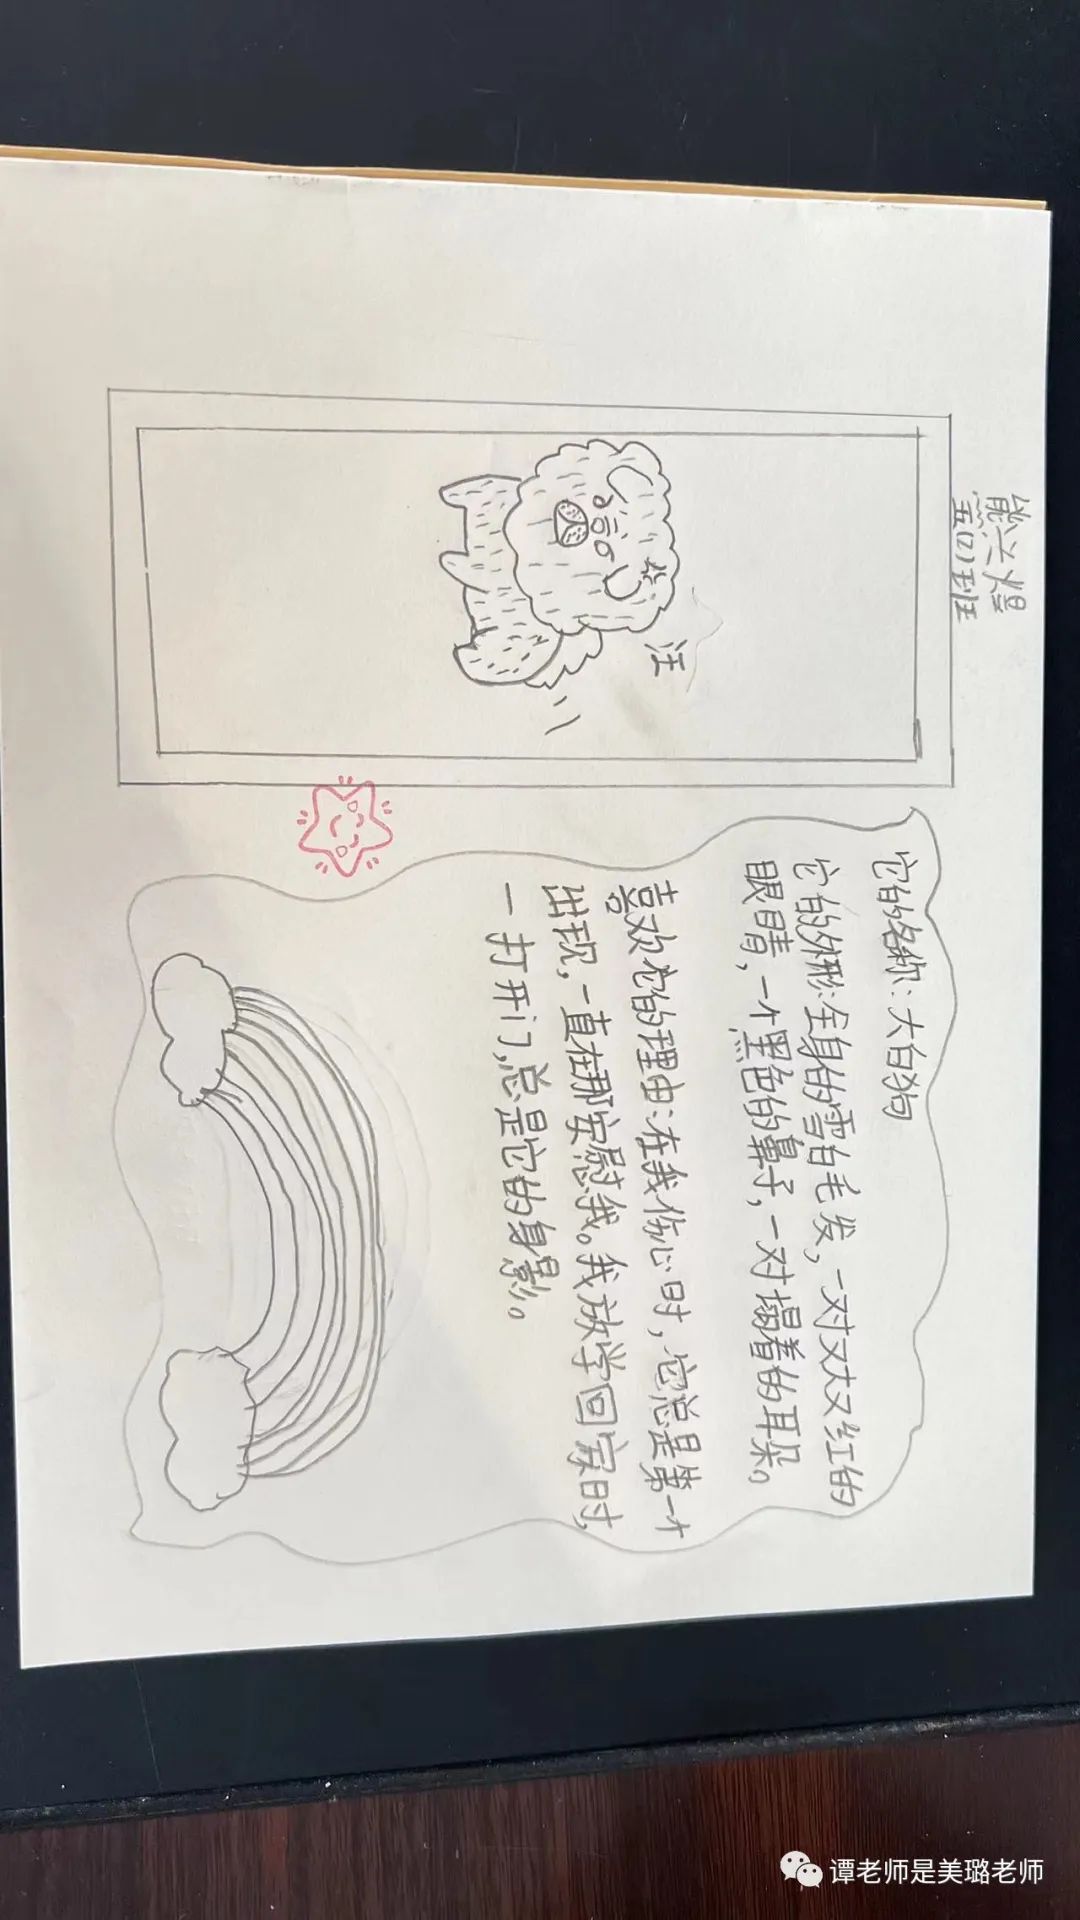 熊兴煜
五(2)班
汪
它的名称:大白狗
它的外形:全身的雪白毛发,一对又大又红的
眼睛,一个黑色的鼻子,一对塌着的耳朵。
喜欢它的理由:在我伤心时,它总是第一个
出现,一直在那安慰我。我放学回家时,
一打开门,总是它的身影。
谭老师是美璐老师